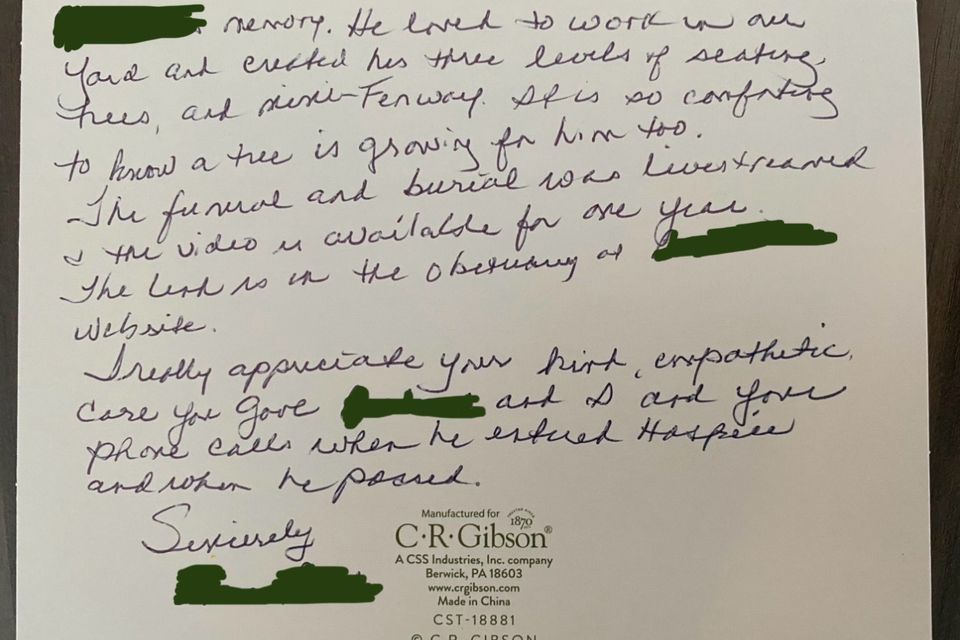 memory. He loved to work in our
yard and created his three levels of seating,
trees, and mini-Fenway. It is so comforting
to know a tree is growing for him too.
The funeral and burial was livestreamed
& the video is available for one year.
The link is in the obituary at
website.
I really appreciate your kind, empathetic,
care you gave and I and your
phone calls when he entered Hospice
and when he passed.
Sincerely
Manufactured for
TRUSTED SINCE 1870
C·R·Gibson®
A CSS Industries, Inc. company
Berwick, PA 18603
www.crgibson.com
Made in China
CST-18881
© C.R. GIBSON